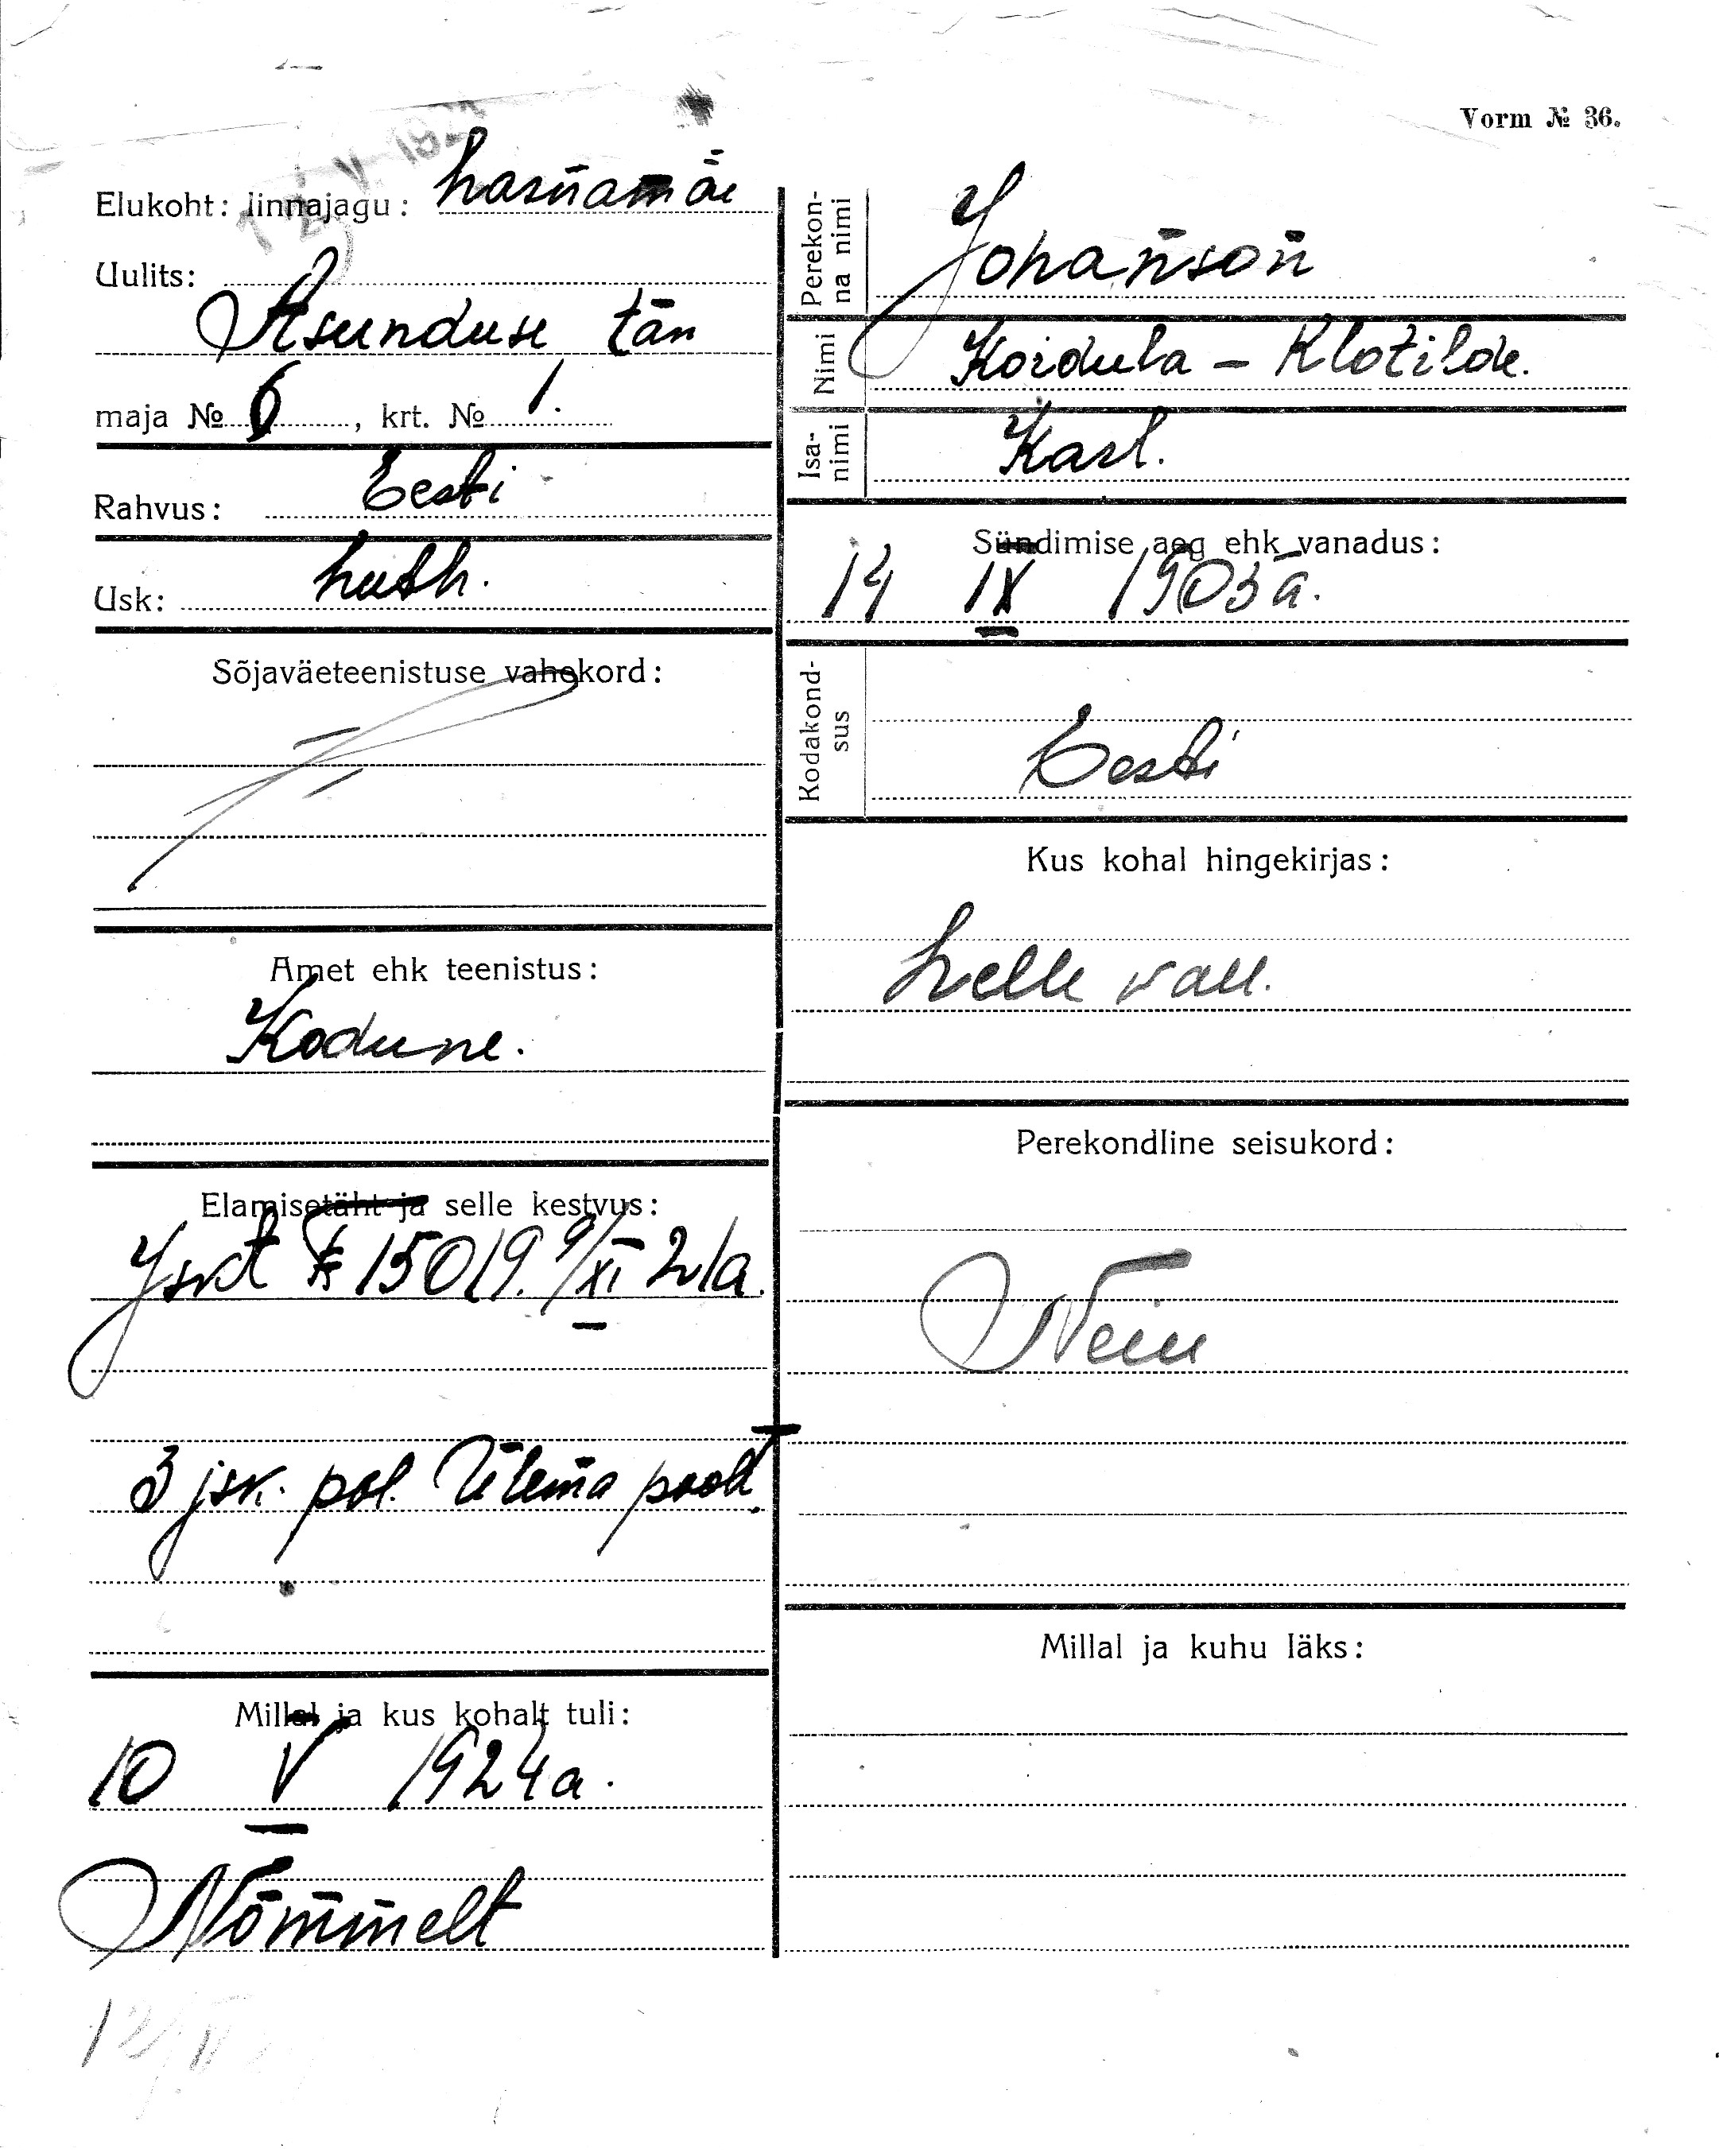 Vorm № 36.
12 V 1924
Elukoht: linnajagu: Lasnamäe
Uulits:
Asunduse tän
maja № 6, krt. № 1.
Rahvus: Eesti
Usk: Luth.
Sõjaväeteenistuse vahekord:
Amet ehk teenistus:
Kodune.
Elamisetäht ja selle kestvus:
Iskt № 15019. 9/XI 21a.
3 jsk. pol. Ülema poolt.
Millal ja kus kohalt tuli:
10 V 1924a.
Nõmmelt
Perekon-
na nimi
Johanson
Nimi
Koidula - Klotilde.
Isa-
nimi
Karl.
Sündimise aeg ehk vanadus:
14 IX 1903 a.
Kodakond-
sus
Eesti
Kus kohal hingekirjas:
Lelle vall.
Perekondline seisukord:
Neiu
Millal ja kuhu läks: